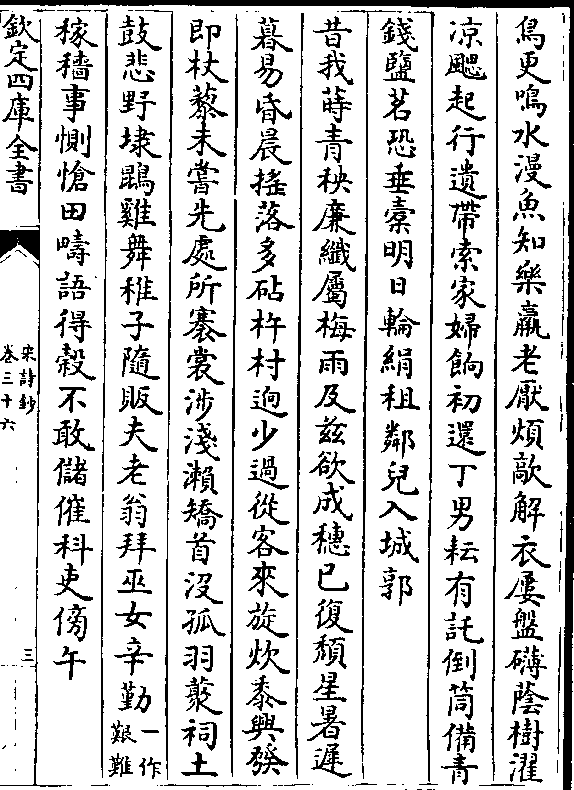 鳥更鳴水漫魚知樂羸老厭煩敲解衣屢盤礴蔭樹濯
凉颸起行遺帶索家婦餉初還丁男耘有託倒筒備青
錢鹽茗恐垂橐明日輪絹租鄰兒入城郭
昔我蒔青秧廉纖屬梅雨及兹欲成穗已復頽星暑遲
暮易昏晨搖落多砧杵村逈少過從客來旋炊黍興發
即杖藜未嘗先處所褰裳涉淺瀨矯首没孤羽叢祠土
鼓悲野埭鵾雞舞稚子隨販夫老翁拜巫女辛勤一作艱難
稼穡事惻愴田疇語得榖不敢儲催科吏傍午
欽定四庫全書
宋詩鈔
卷三十六
三